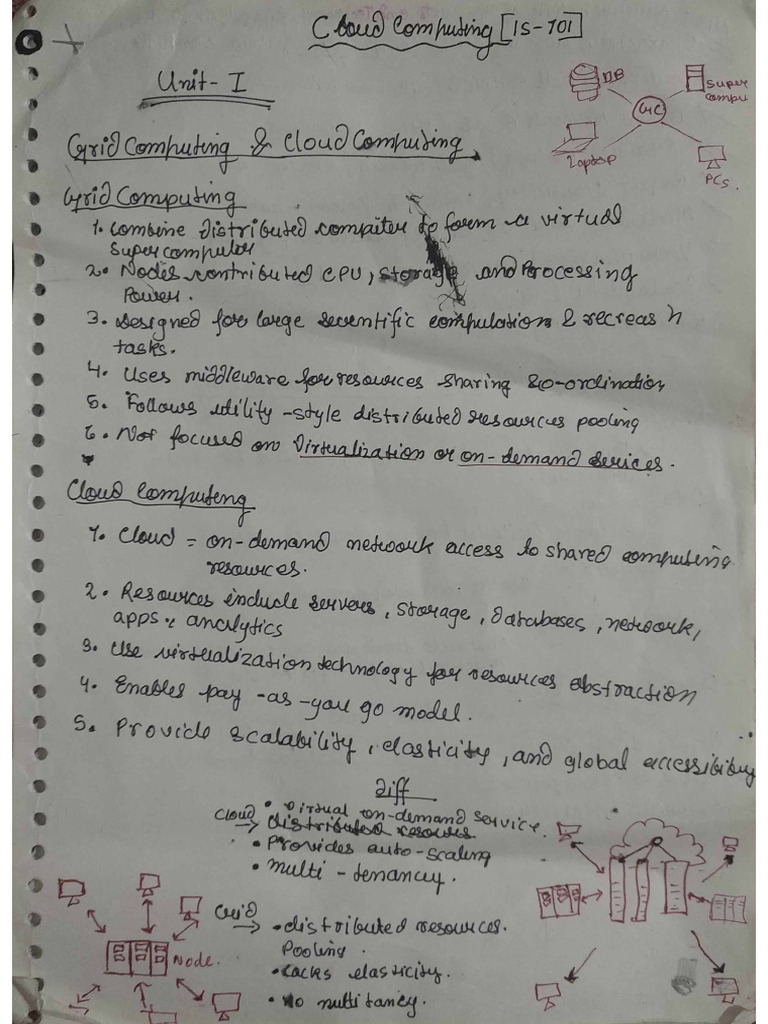 Cloud Computing [IS-701]
Unit-I
DB
Super
compu
GC
Laptop
PCs.
Grid Computing & Cloud Computing
Grid Computing
1. combine distributed computer to form a virtual
supercomputer
2. Nodes contributed CPU, storage and Processing
Power.
3. Designed for large scientific computation &
tasks.
4. Uses middleware for resources sharing & co-ordination
5. Follows utility-style distributed resources pooling
6. Not focused on Virtualization or on-demand services.
Cloud Computing
1. Cloud = on-demand network access to shared computing
resources.
2. Resources include servers, storage, databases, network,
apps & analytics
3. Use virtualization technology for resources abstraction
4. Enables pay-as-you go model.
5. Provide scalability, elasticity, and global accessibility
Diff
Cloud → • Virtual on-demand service.
distributed resources
• Provides auto-scaling
• multi-tenancy.
Grid → • distributed resources.
Pooling.
• Lacks elasticity.
• No multitancy.
Node.